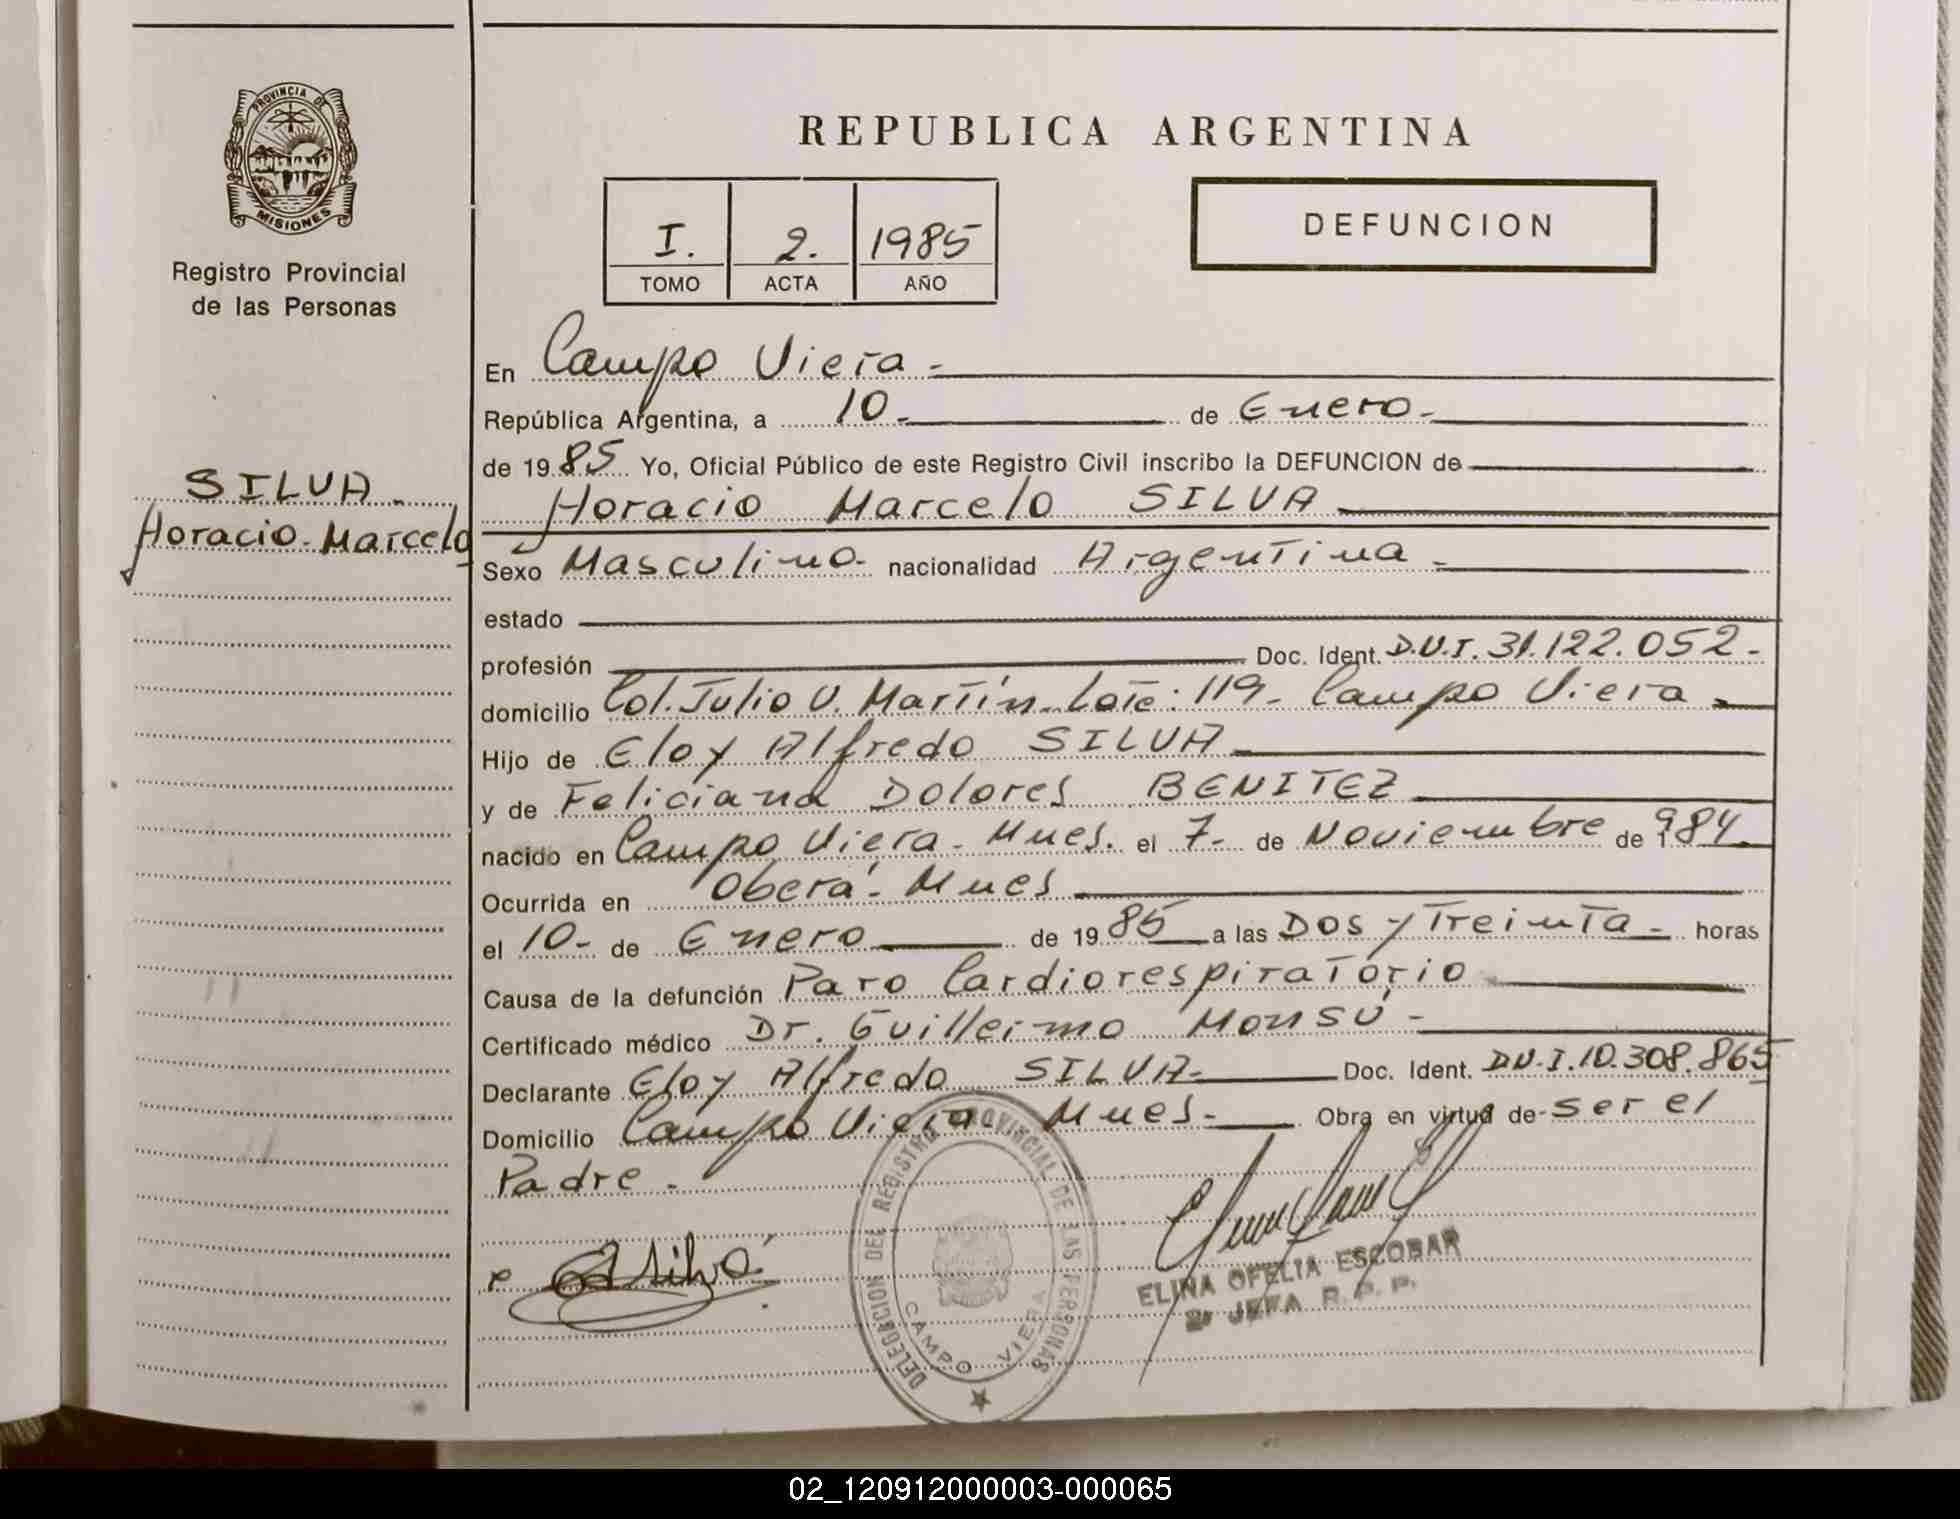 PROVINCIA DE
MISIONES
Registro Provincial
de las Personas
SILVA.
Horacio Marcelo
REPUBLICA ARGENTINA
I. 2. 1985
TOMO ACTA AÑO
DEFUNCION
En Campo Viera -
República Argentina, a 10. de Enero.
de 1985 Yo, Oficial Público de este Registro Civil inscribo la DEFUNCION de
Horacio Marcelo SILVA
Sexo Masculino nacionalidad Argentina
estado
profesión Doc. Ident. D.N.I. 31.122.052-
domicilio Col. Julio U. Martín. Lote: 119- Campo Viera -
Hijo de Eloy Alfredo SILVA
y de Feliciana Dolores BENITEZ
nacido en Campo Viera - Mnes. el 7- de Noviembre de 1984.
Ocurrida en Oberá- Mnes
el 10- de Enero de 1985 a las Dos y Treinta - horas
Causa de la defunción Paro Cardiorespiratorio
Certificado médico Dr. Guillermo Monsú -
Declarante Eloy Alfredo SILVA- Doc. Ident. D.N.I. 10.308.865
Domicilio Campo Viera Mnes- Obra en virtud de- ser el
Padre -
DELEGACION DEL REGISTRO PROVINCIAL DE LAS PERSONAS
CAMPO VIERA
ELINA OFELIA ESCOBAR
2ª JEFA R. P. P.
02_120912000003-000065